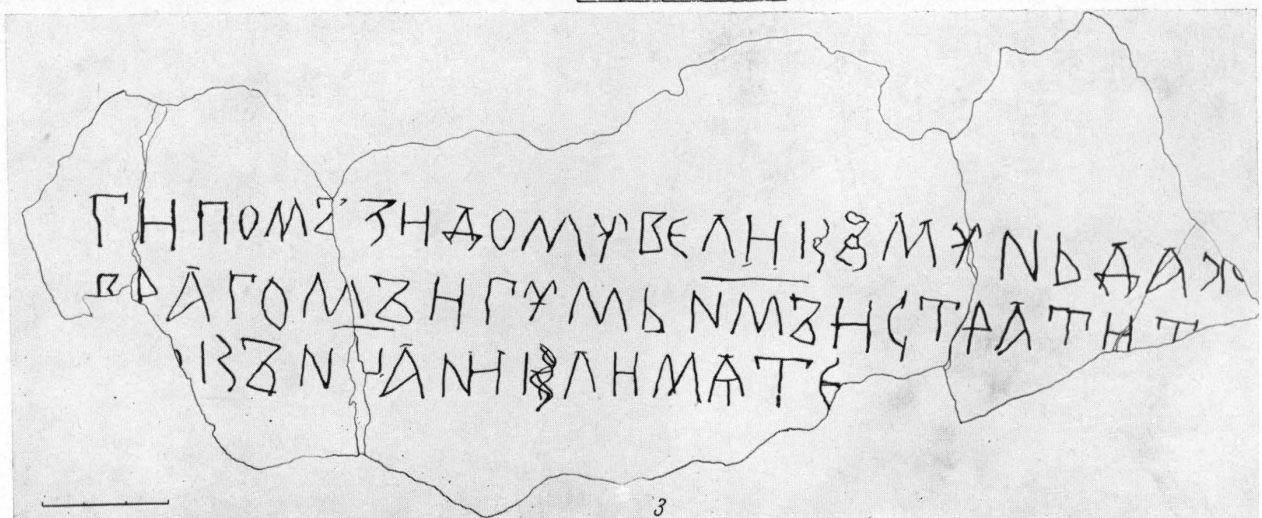 ГИПОМЪЗИДОМУВЕЛИКЪМУНЬДАЖ
ВРАГОМЪИГУМЬНМЪИСТРАТИТ
КЪНЦАНИКЛИМѦТЕ
3